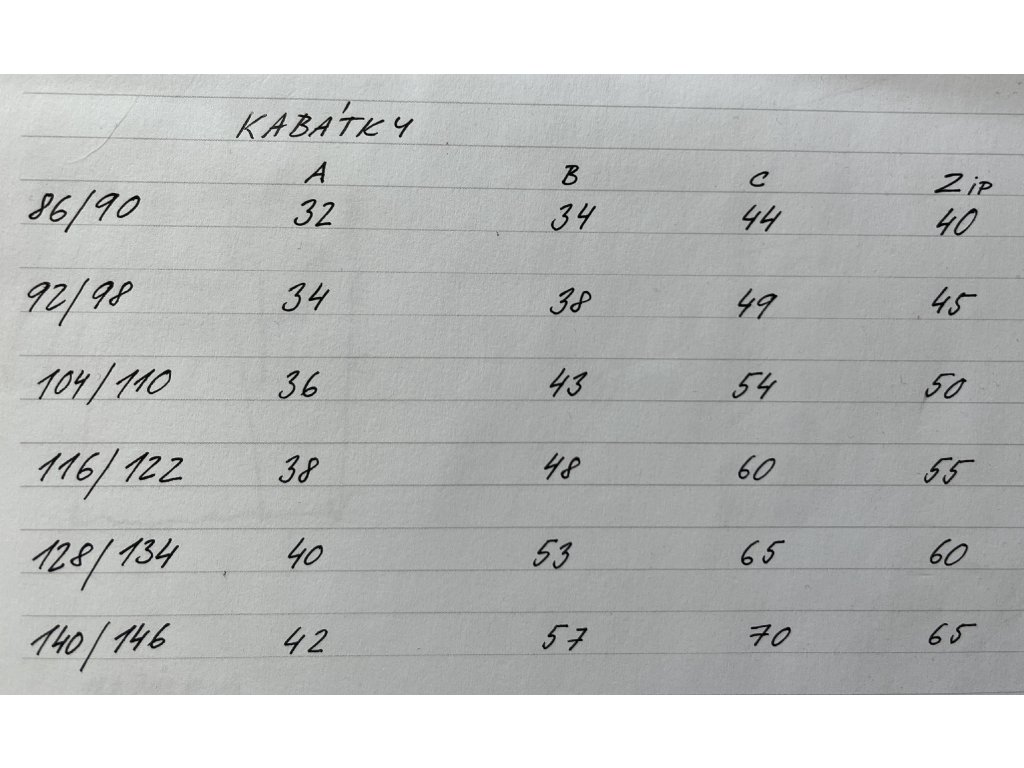 KABÁTKY
A B C Zip
86/90 32 34 44 40
92/98 34 38 49 45
104/110 36 43 54 50
116/122 38 48 60 55
128/134 40 53 65 60
140/146 42 57 70 65